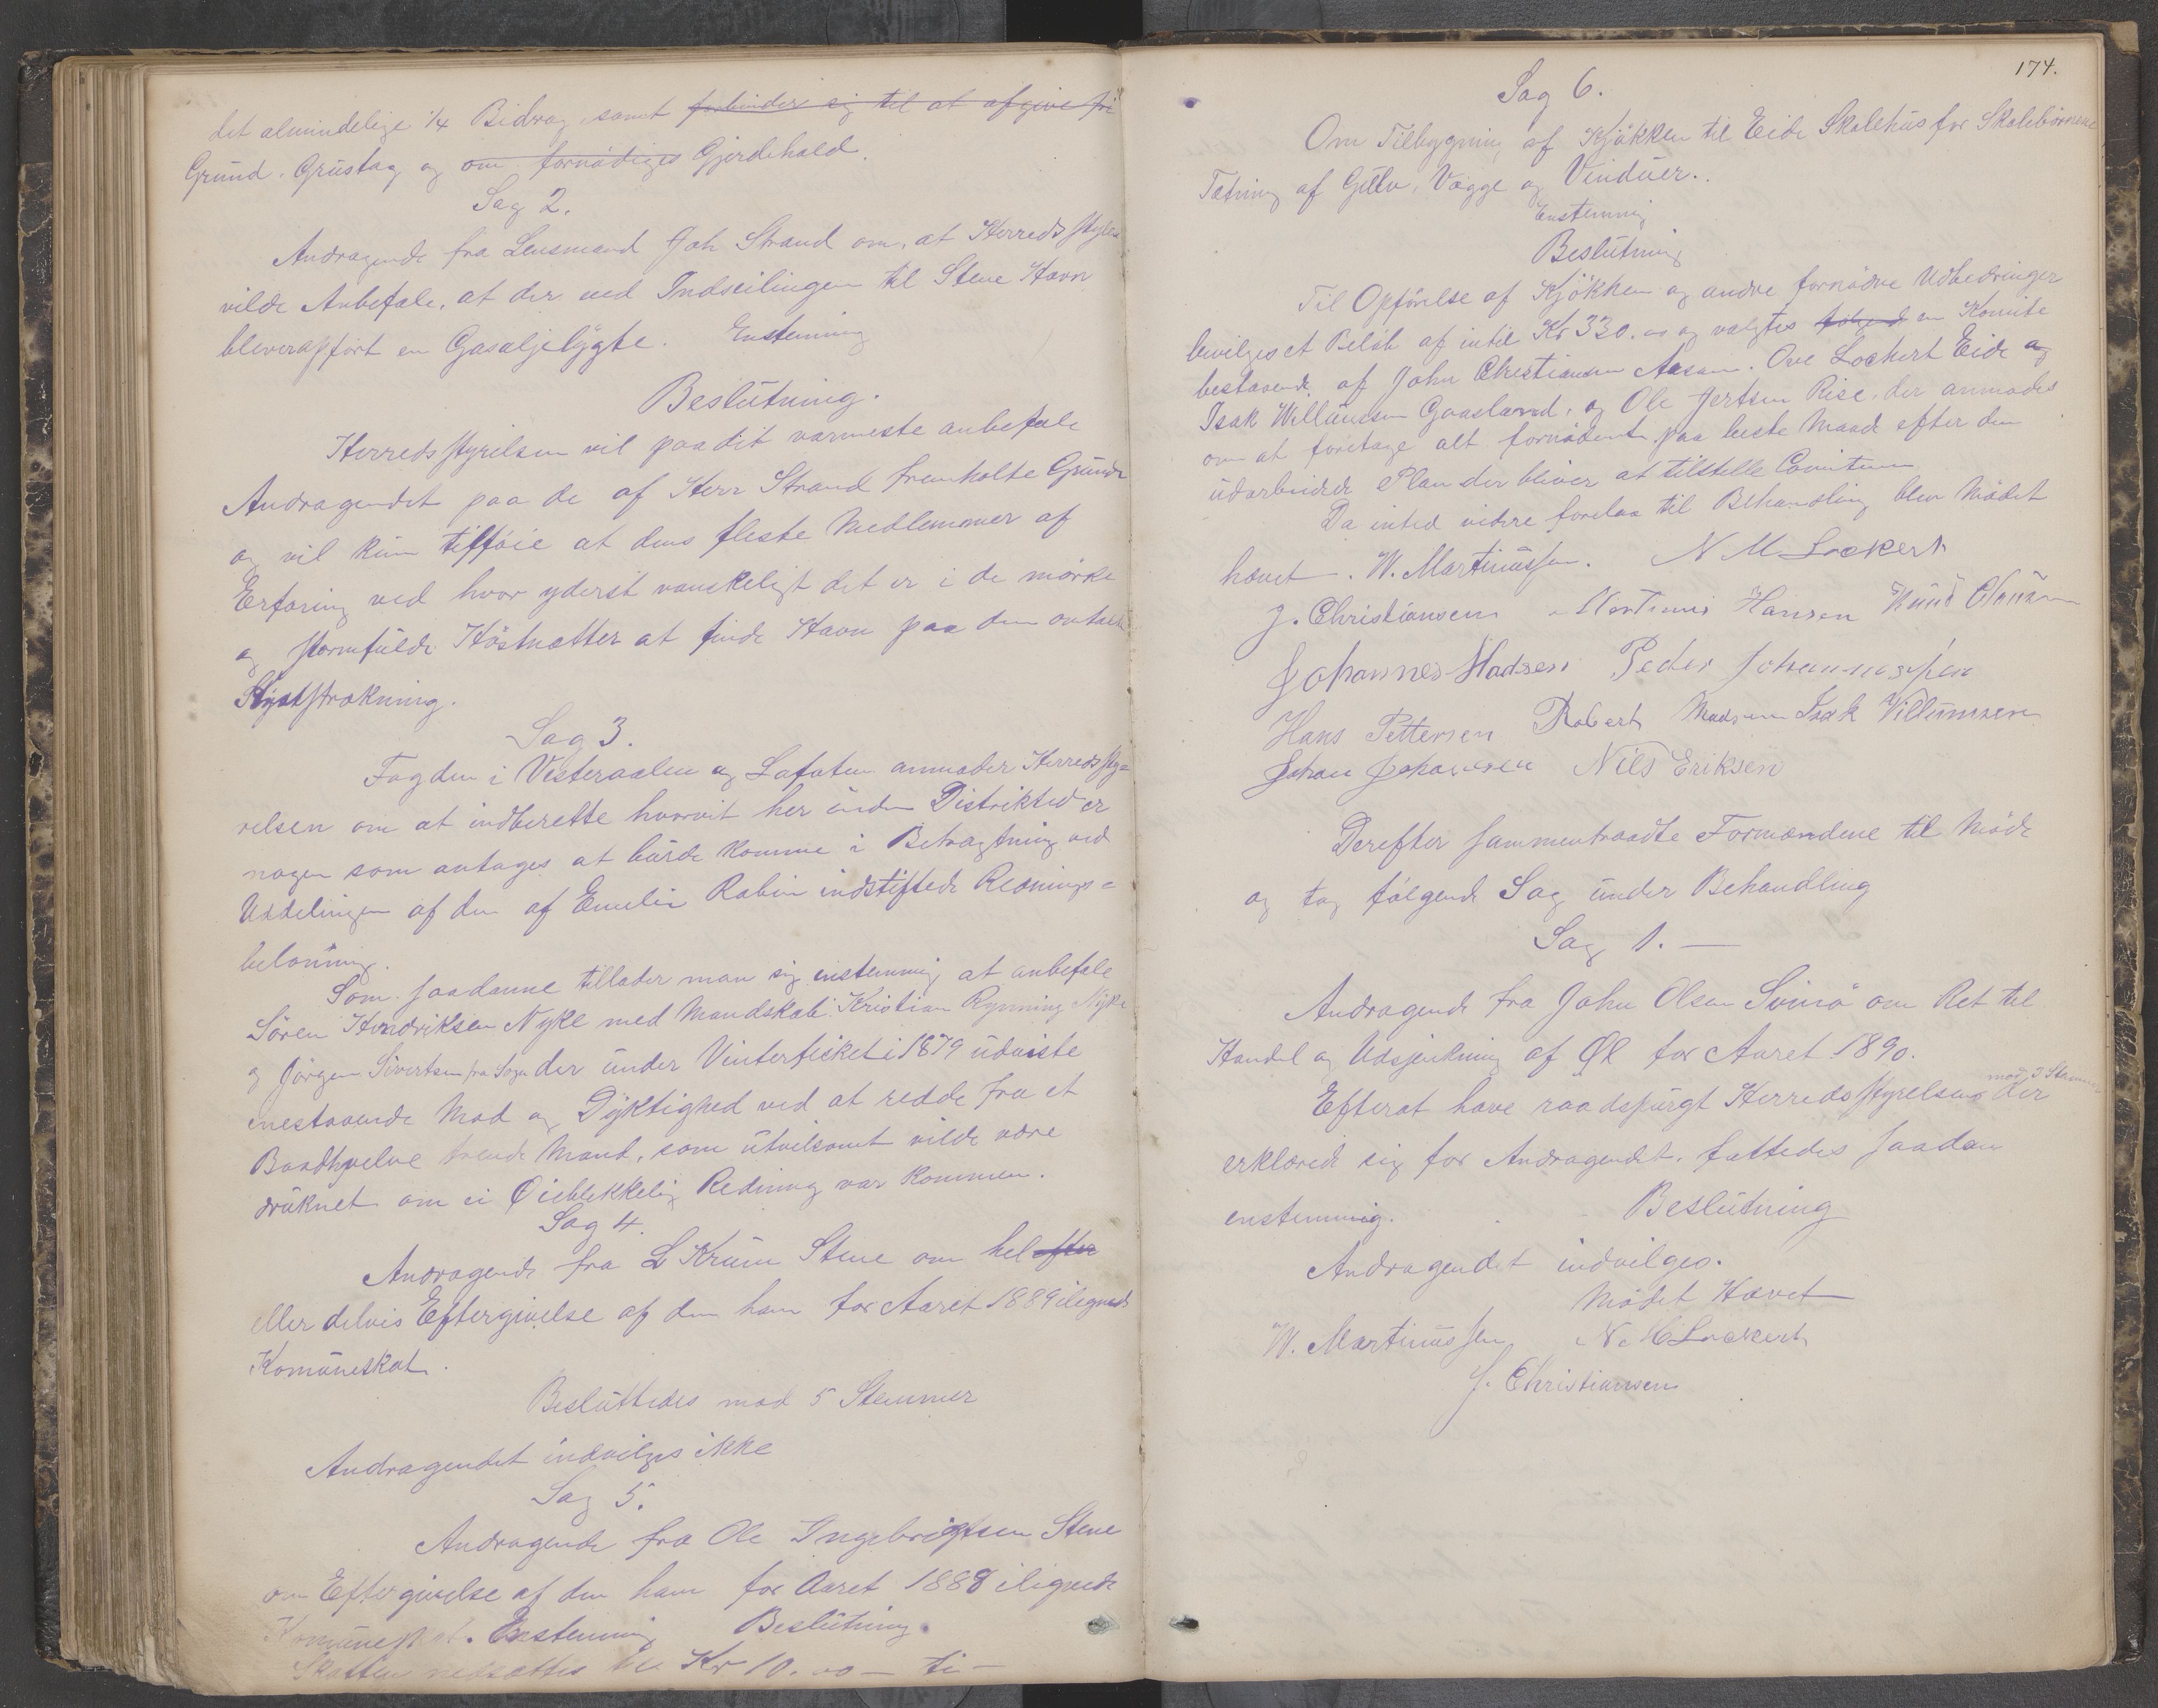 det almindelige 1/4 Bidrag samt forbinder sig til at afgive fri
Grund, Grustag og om fornödiges Gjerdehold.
Sag 2.
Andragende fra Lensmand Joh Strand om, at Herredsstyrelsen
vilde Anbefale, at der ved Indseilingen til Stene Havn
blev opfört en Gasoljelygte. Enstemmig
Beslutning.
Herredsstyrelsen vil paa dit varmeste anbefale
Andragendet paa de af Herr Strand fremholte Grunde
og vil kun tilföie at dens fleste Medlemmer af
Erfaring ved hvor yderst vanskeligt det er i de mörke
og stormfulde Höstnætter at finde Havn paa den omtalte
Kyststrækning.
Sag 3.
Fogden i Vesteraalen og Lofoten anmoder Herredssty=
relsen om at indberette hvorvit her inden Distriktet er
nogen som antages at burde komme i Betragtning ved
Uddelingen af den af Emelie Robin indstiftede Rednings=
belönning.
Som saadanne tillader man sig enstemmig at anbefale
Sören Hendriksen Nyke med Mandskab: Kristian Rynning Nyke
og Jörgen Sivertsen fra  der under Vinterfisket i 1879 udviste
enestaaende Mod og Dyktighed ved at redde fra et
Baadhvelve trende Mand, som utvilsomt vilde være
druknet om ei Öieblikkelig Redning var kommen.
Sag 4.
Andragende fra L Krum Stene om hel efter
eller delvis Eftergivelse af den ham for Aaret 1889 ilignede
Komuneskat.
Besluttedes mod 5 Stemmer
Andragendet indvilges ikke
Sag 5.
Andragende fra Ole Ingebrigtsen Stene
om Eftergivelse af den ham for Aaret 1888 ilignede
Komuneskat. Enstemmig Beslutning.
Skatten nedsættes til Kr 10.00 – ti –
174.
Sag 6.
Om Tilbygning af Kjökken til Eide Skolehus for Skolebörnene
Tætning af Gulv, Vægge og Vinduer.
Enstemmig
Beslutning
Til Opförelse af Kjökken og andre fornödne Udbedringer
bevilges et Belöb af intil Kr 330.00 og valgtes fölgend en Komite
bestaaende af John Christiansen Aasan. Ove Lockert Eide og
Isak Willumsen Gaasland, og Ole Jertsen Rise, der anmodes
om at foretage alt fornödent paa beste Maade efter den
udarbeidede Plan der bliver at tilstelle Comiteen
Da inted videre forelaa til Behandling blev Mödet
hævet. W. Martinussen. N M Lockert
J. Christiansen Martinus Hansen Knud Olausen
Johannes Madsen Peder Johannessen
Hans Pettersen Robert Madsen Isak Villumsen
Johan Johansen Nils Eriksen
Derefter sammentraadte Formændene til Möde
og tog fölgende Sag under Behandling
Sag 1. –
Andragende fra John Olsen Svinö om Ret til
Handel og Udsjenkning af Øl for Aaret 1890.
mod 3 Stemmer
Efterat have raadspurgt Herredsstyrelsen der
erklærede sig for Andragendet. fattedes saadan
enstemmig. Beslutning
Andragendet indvilges.
Mödet Hævet
W. Martinussen N. M Lockert
J. Christiansen